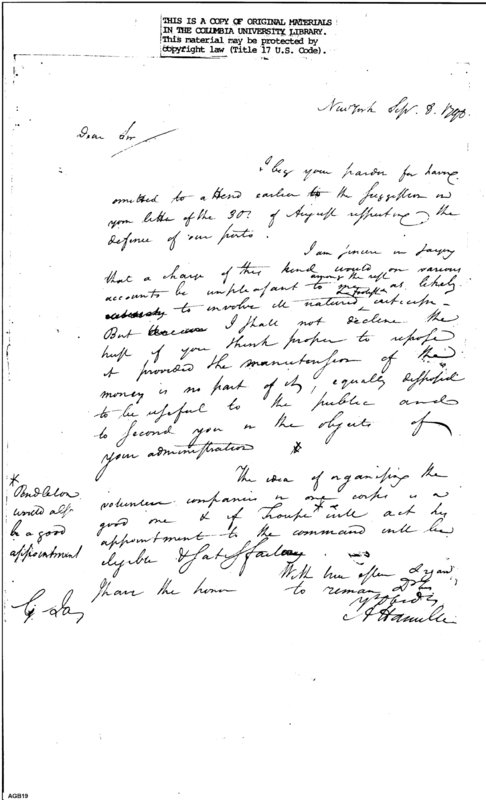 THIS IS A COPY OF ORIGINAL MATERIALS
IN THE COLUMBIA UNIVERSITY LIBRARY.
This material may be protected by
copyright law (Title 17 U.S. Code).
New York Sepr. 8. 1798
Dear Sir
I beg your pardon for having
omitted to attend earlier to the suggestion in
your letter of the 30th of August respecting the
defence of our ports.
I am sincere in saying
that a charge of this kind would on various
accounts be unpleasant to me among the rest as likely
to involve ill natured criticism
But I shall not decline the
trust if you think proper to repose
it provided the manutension of the
money is no part of it, equally disposed
to be useful to the public and
to second you in the objects of
your administration *
The idea of organising the
volunteer companies in one corps is a
good one & if Troupe* will act his
appointment to the command will be
eligible & satisfactory
* Pendleton
would also
be a good
appointment
With true esteem & regard
I have the honor to remain Dr Sir
Yr Obed
A Hamilton
G Jay
AGB19